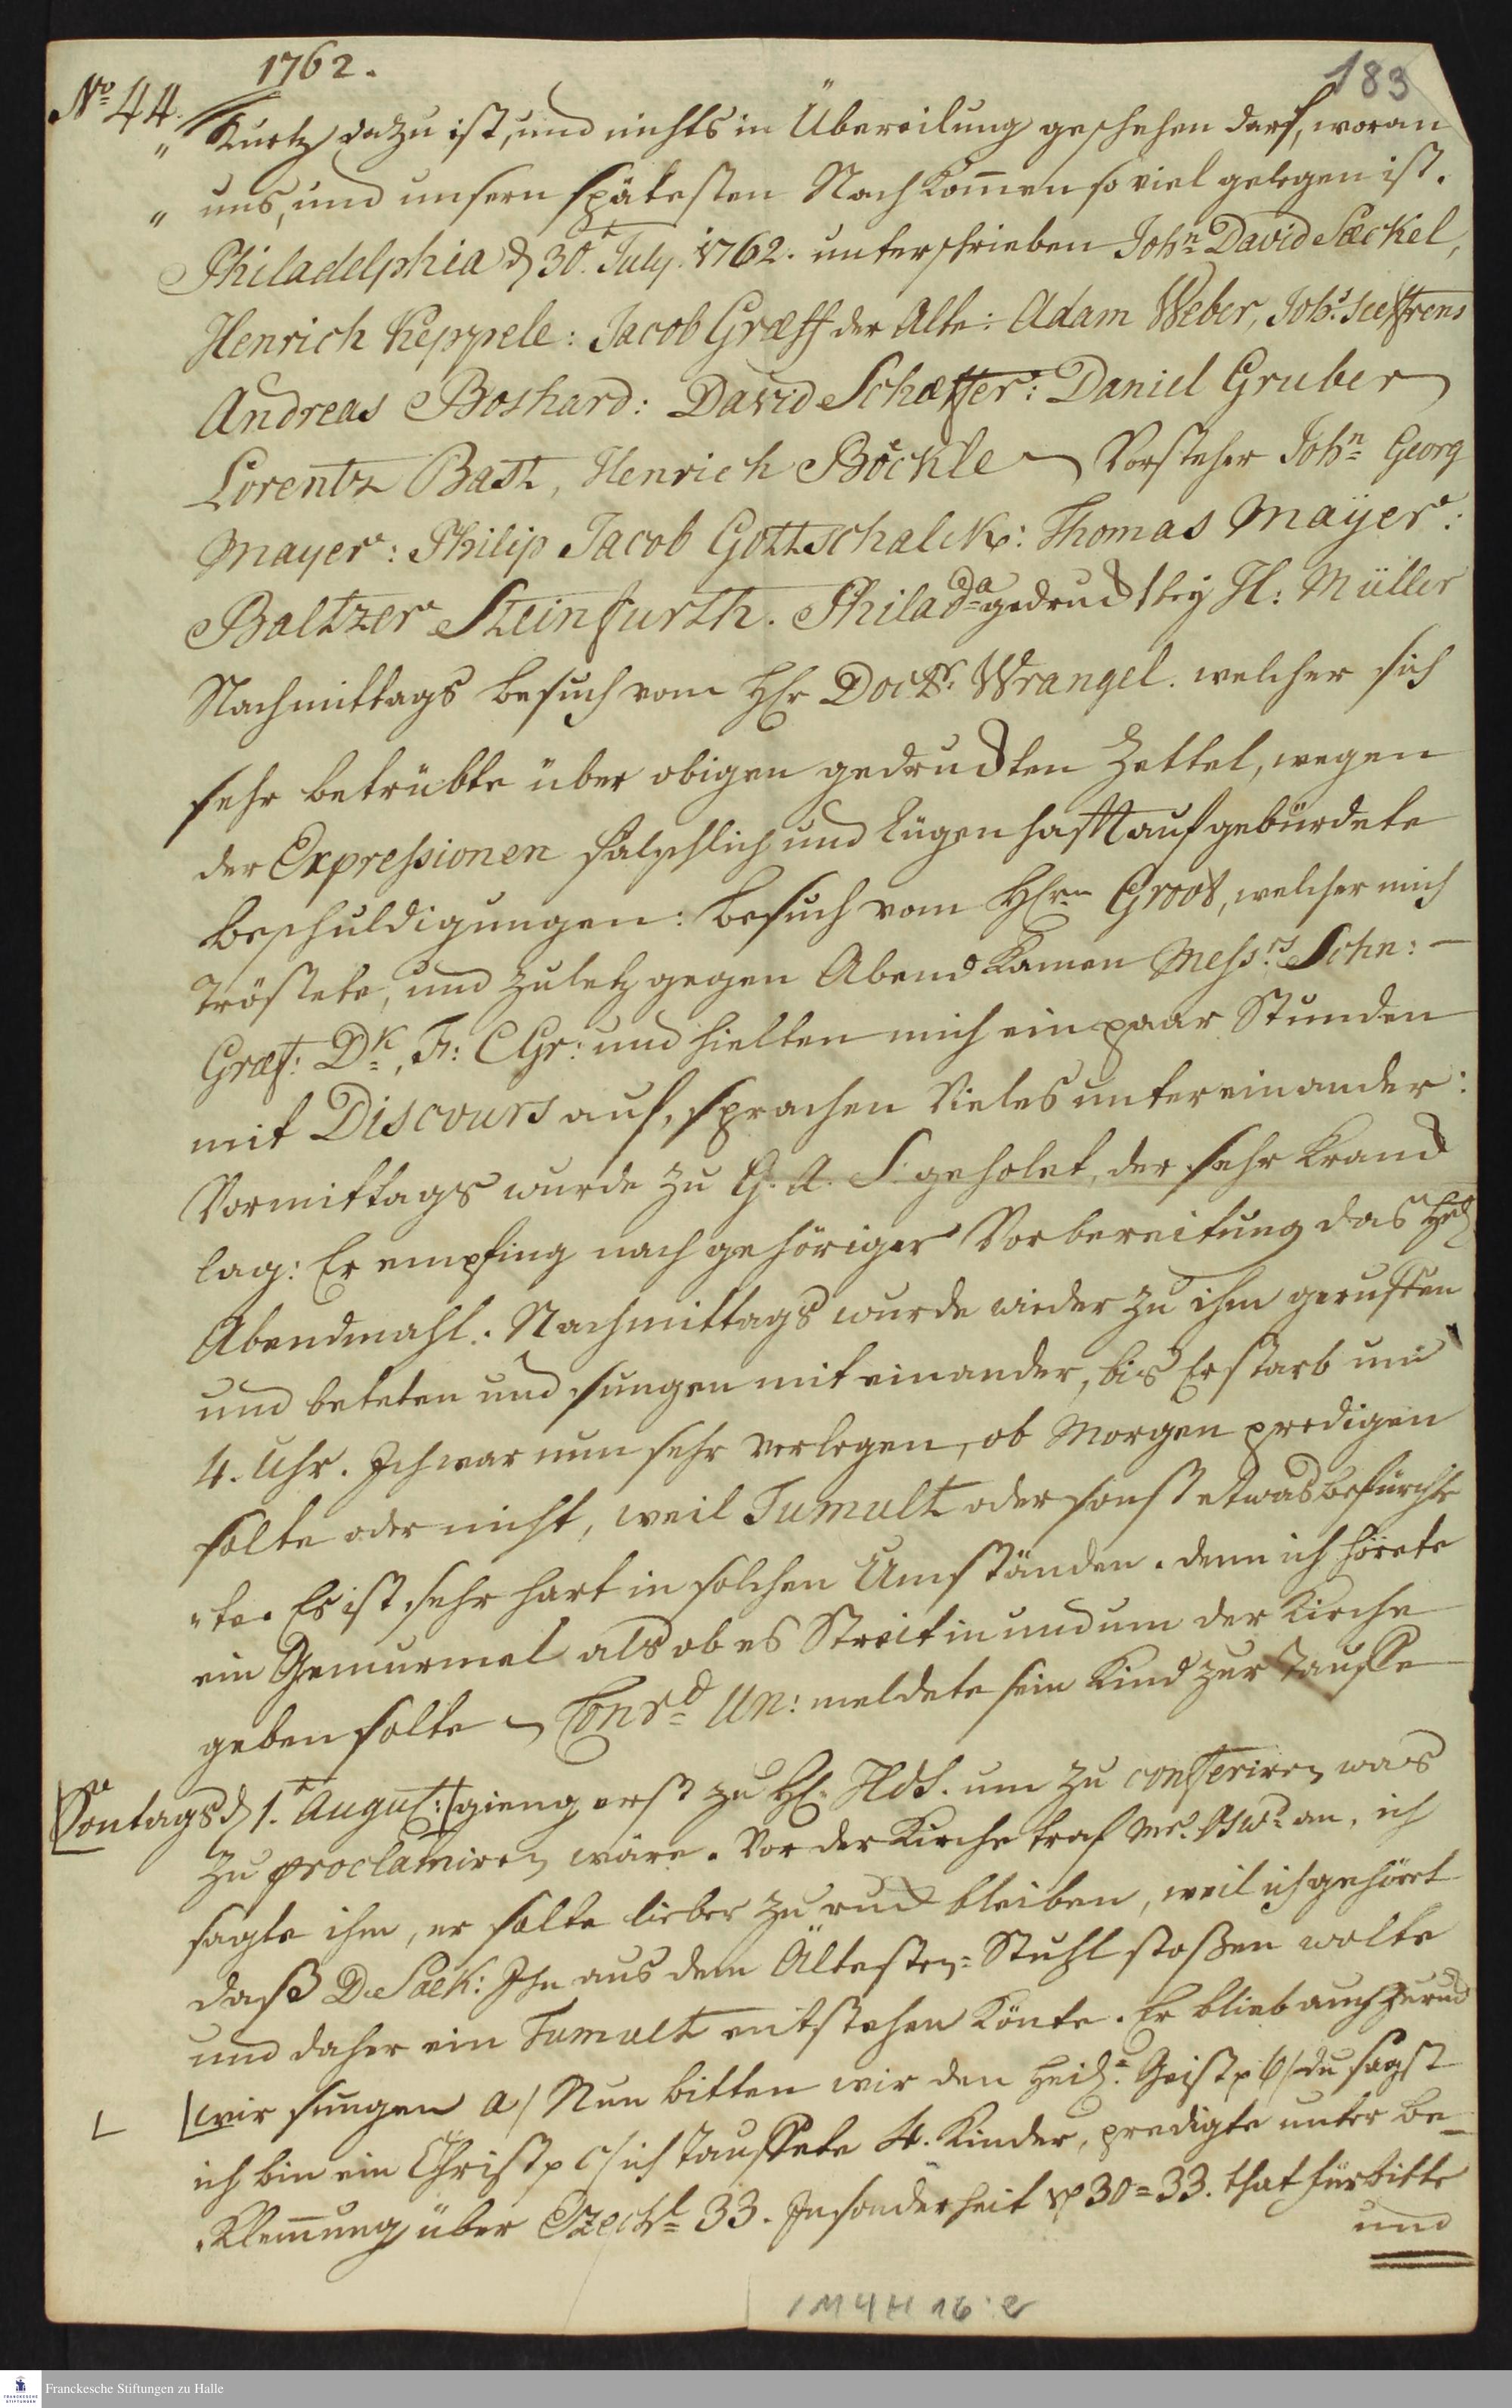 1762.
183
No 44.
„ Kurtz dazu ist, und nichts in Übereilung geschehen darf, woran
„ uns, und unsern spätesten Nachkom̄en so viel gelegen ist.
Philadelphia d 30.t July. 1762. unterschrieben John David Sæckel,
Henrich Keppele: Jacob Græff der Alte: Adam Weber, Johs.
Andreas Boshard: David Schæffer: Daniel Gruber
Lorentz Bast, Henrich Böckle Vorsteher John Georg
Mayer: Philip Jacob Gottschalck: Thomas Maÿer:
Baltzer Steinfurth. Philada gedruckt bey H: Müller
Nachmittags besuch vom Hhr Doctr: Wrangel. welcher sich
sehr betrübte über obigen gedruckten Zettel, wegen
der Expressionen fälschlich und Lügenhafft aufgebürdete
beschuldigungen: besuch vom Hhrn Groot, welcher mich
tröstete, und zuletz gegen Abend kamen Messrs Schn: —
Græf: Dk, F: CGr: und hielten mich ein paar Stunden
mit Discours auf, sprachen Vieles untereinander:
Vormittags wurde zu G. A. S. geholet, der sehr kranck
lag: Er empfing nach gehöriger Vorbereitung das Heil
Abendmahl. Nachmittags wurde wieder zu ihm geruffen
und beteten und sungen mit einander, bis Er starb um
4. Uhr. Ich war nun sehr verlegen, ob Morgen predigen
solte oder nicht, weil Tumult oder sonst etwas befürch-
„te. Es ist sehr hart in solchen Umständen. denn ich hörete
ein Gemurmel als ob es Streit in und um der Kirche
geben solte Conrd Un: meldete sein Kind zur Tauffe
Sontags d 1.t August: gieng erst zu H. Hdt. um zu conferiren was
zu proclamiren wäre. Vor der Kirche traf Mr. an, ich
sagte ihm, er solte lieber zuruck bleiben, weil ich gehöret
daß D. Sæk: Ihn aus dem Ältesten-Stuhl stoßen wolte
und daher ein Tumult entstehen könte. Er blieb auch zuruck
wir sungen a/ Nun bitten wir den Heil: Geist p b/ du sagst
ich bin ein Christ p c/ ich tauffete 4. Kinder, predigte unter be-
„klem̄ung über Ezechl 33. Insonderheit v 30=33. that fürbitte
und
1 M 4 H 16 : 2
Franckesche Stiftungen zu Halle